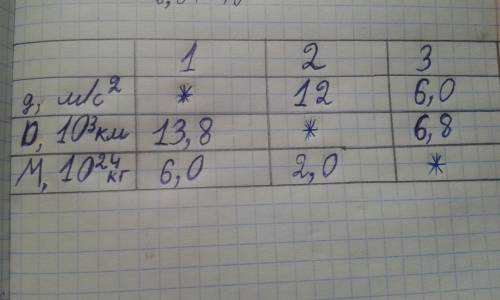 1 2 3
g, м/с² * 12 6,0
D, 10³км 13,8 * 6,8
M, 10²⁴кг 6,0 2,0 *